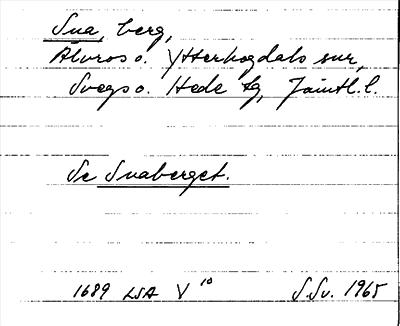 Sua, berg,
Älvros o. Ytterhogdals snr,
Svegs o. Hede tg, Jämtl. l.
Se Suaberget.
1689 LSA V 10 S.Sv. 1965